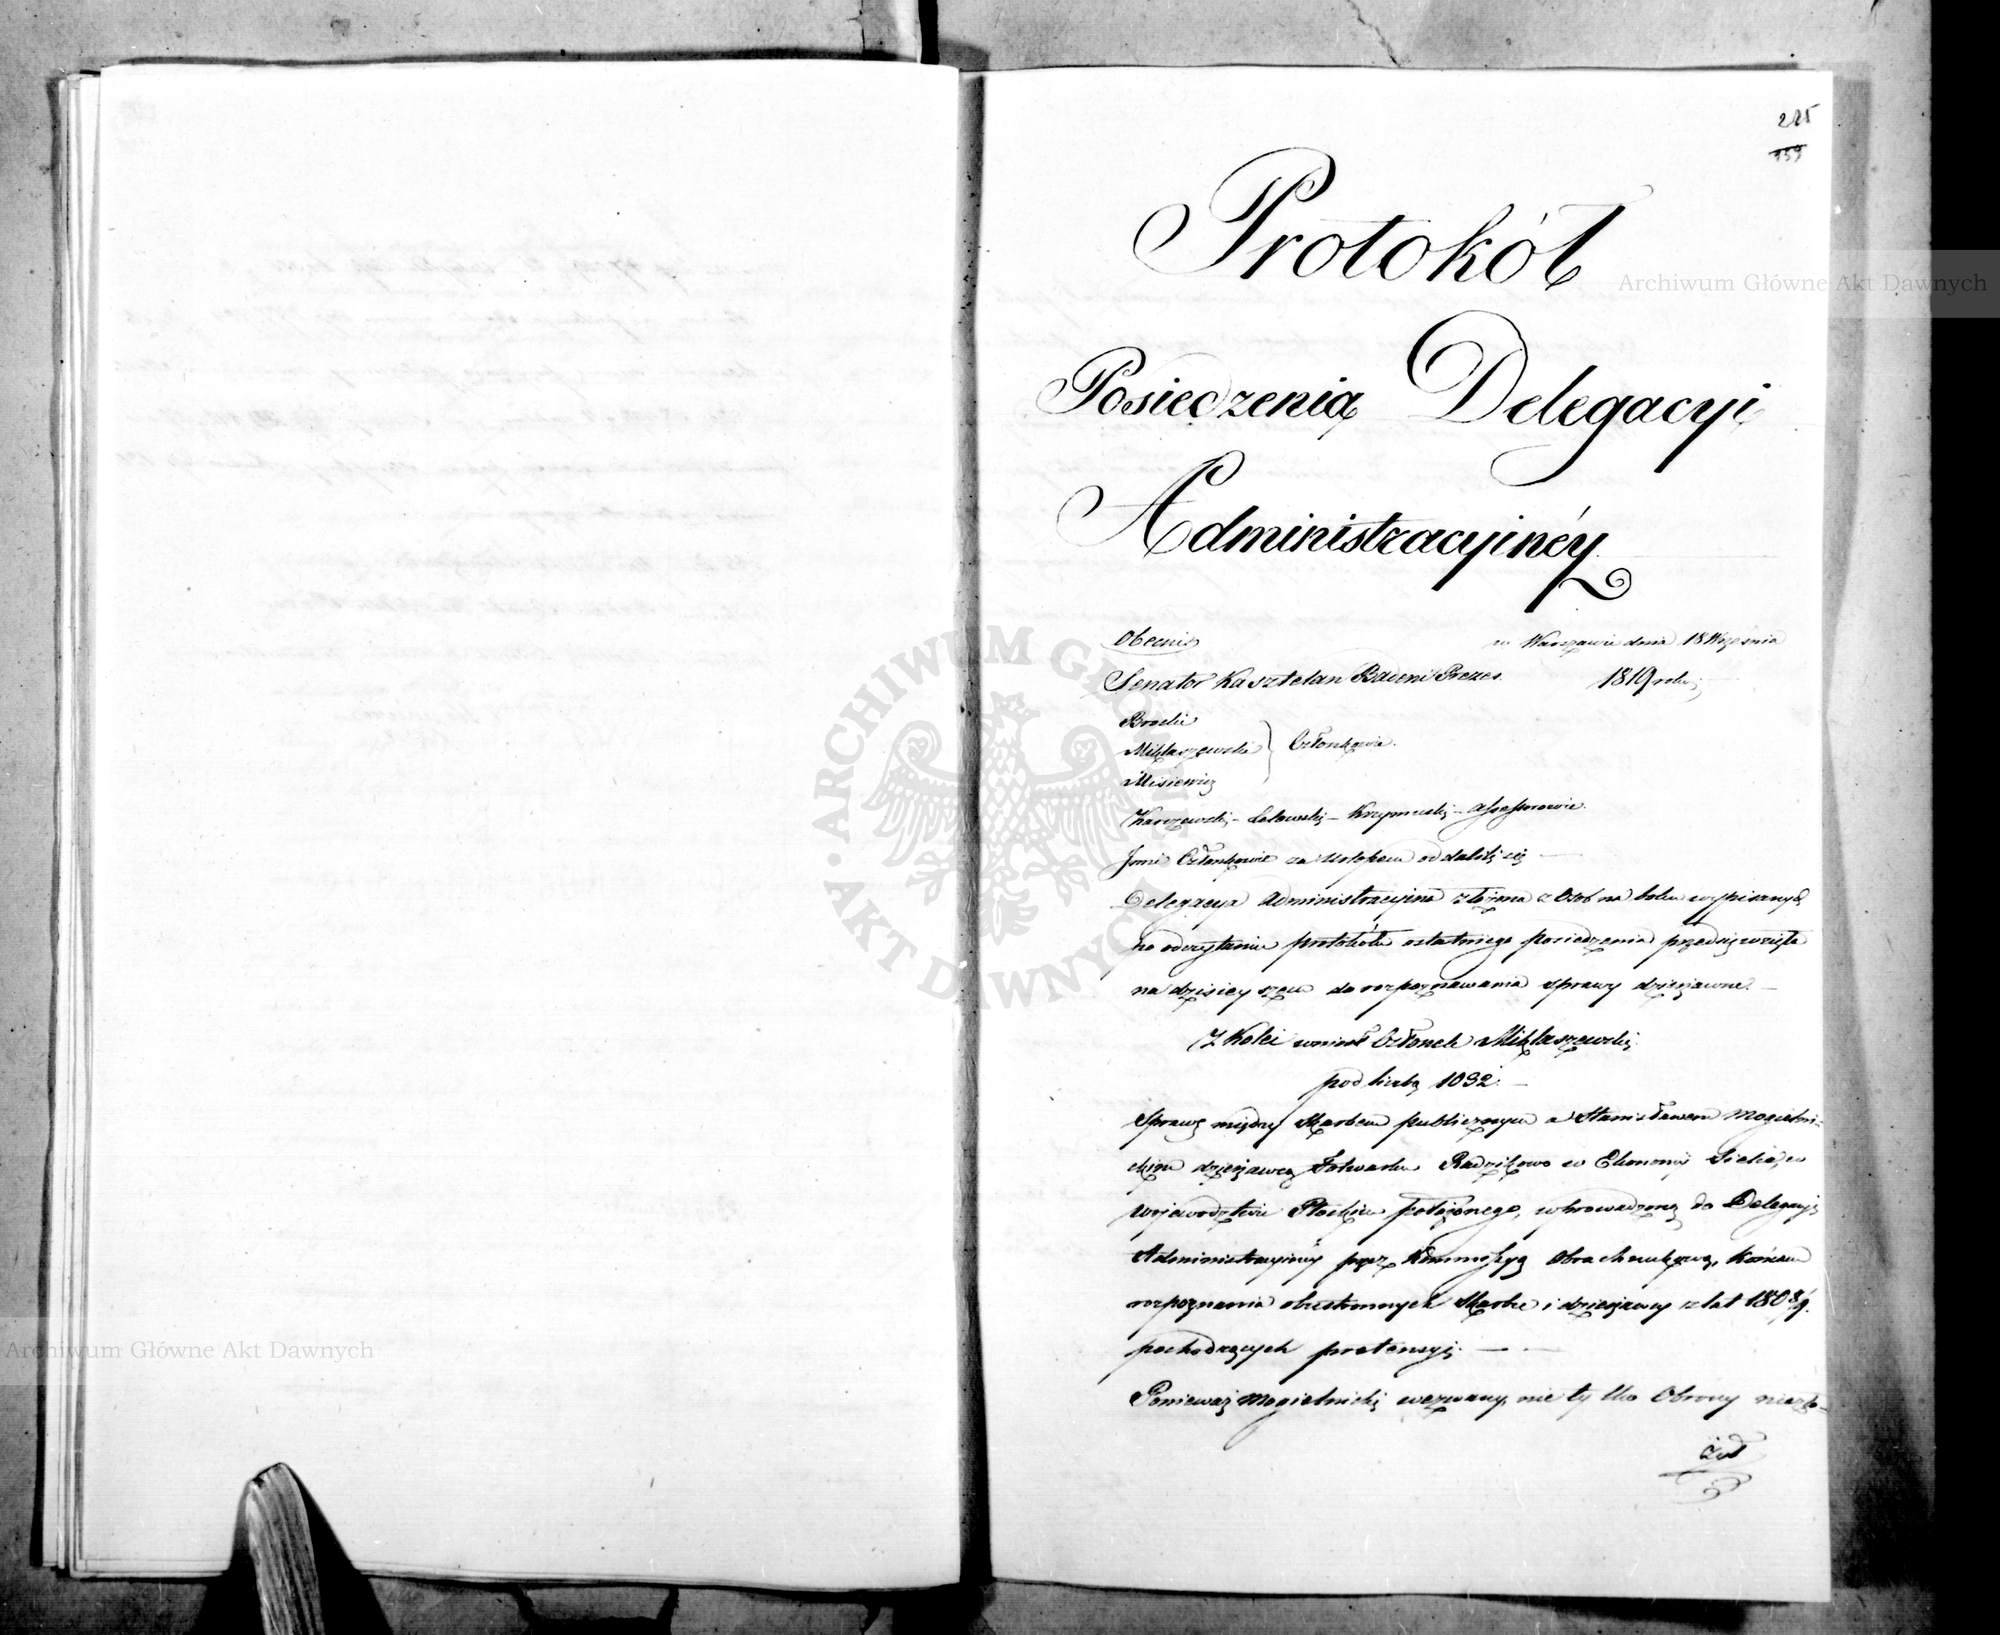 225
159
Protokół
Posiedzenia Delegacyi
Administracyinéy
Obecni
w Warszawie dnia 18 Września
Senator Kasztelan Badeni Prezes
1819 roku
Brocki
Miklaszewski } Członkowie.
Misiewicz
Karczewski - Lelowski - Krzymuski - Assessorowie.
Inni Członkowie za Urlopem oddalili się
Delegacya Administracyina złożona z Osób na boku wypisanych
po odczytaniu protokółu ostatniego posiedzenia przedsięwzięła
na dzisieyszem do rozpoznawania sprawy dzierżawne.
Z Kolei wniósł Członek Miklaszewski
pod liczbą 1032.
Sprawę między Skarbem publicznym a Stanisławem Mogielni-
ckim dzierżawcą Folwarku Radzikowo w Ekonomii Sielia, w
Województwie Płockim położonego, wprowadzoną do Delegacyi
Administracyiney przez Kommissyą Obrachunkową, końcem
rozpoznania obustronnych Skarbu i dzierżawcy z lat 1808/9.
pochodzących pretensyi.
Ponieważ Mogielnicki wezwany, nie tylko Obrony niezło-
żył
ARCHIWUM GŁÓWNE AKT DAWNYCH
Archiwum Główne Akt Dawnych
Archiwum Główne Akt Dawnych